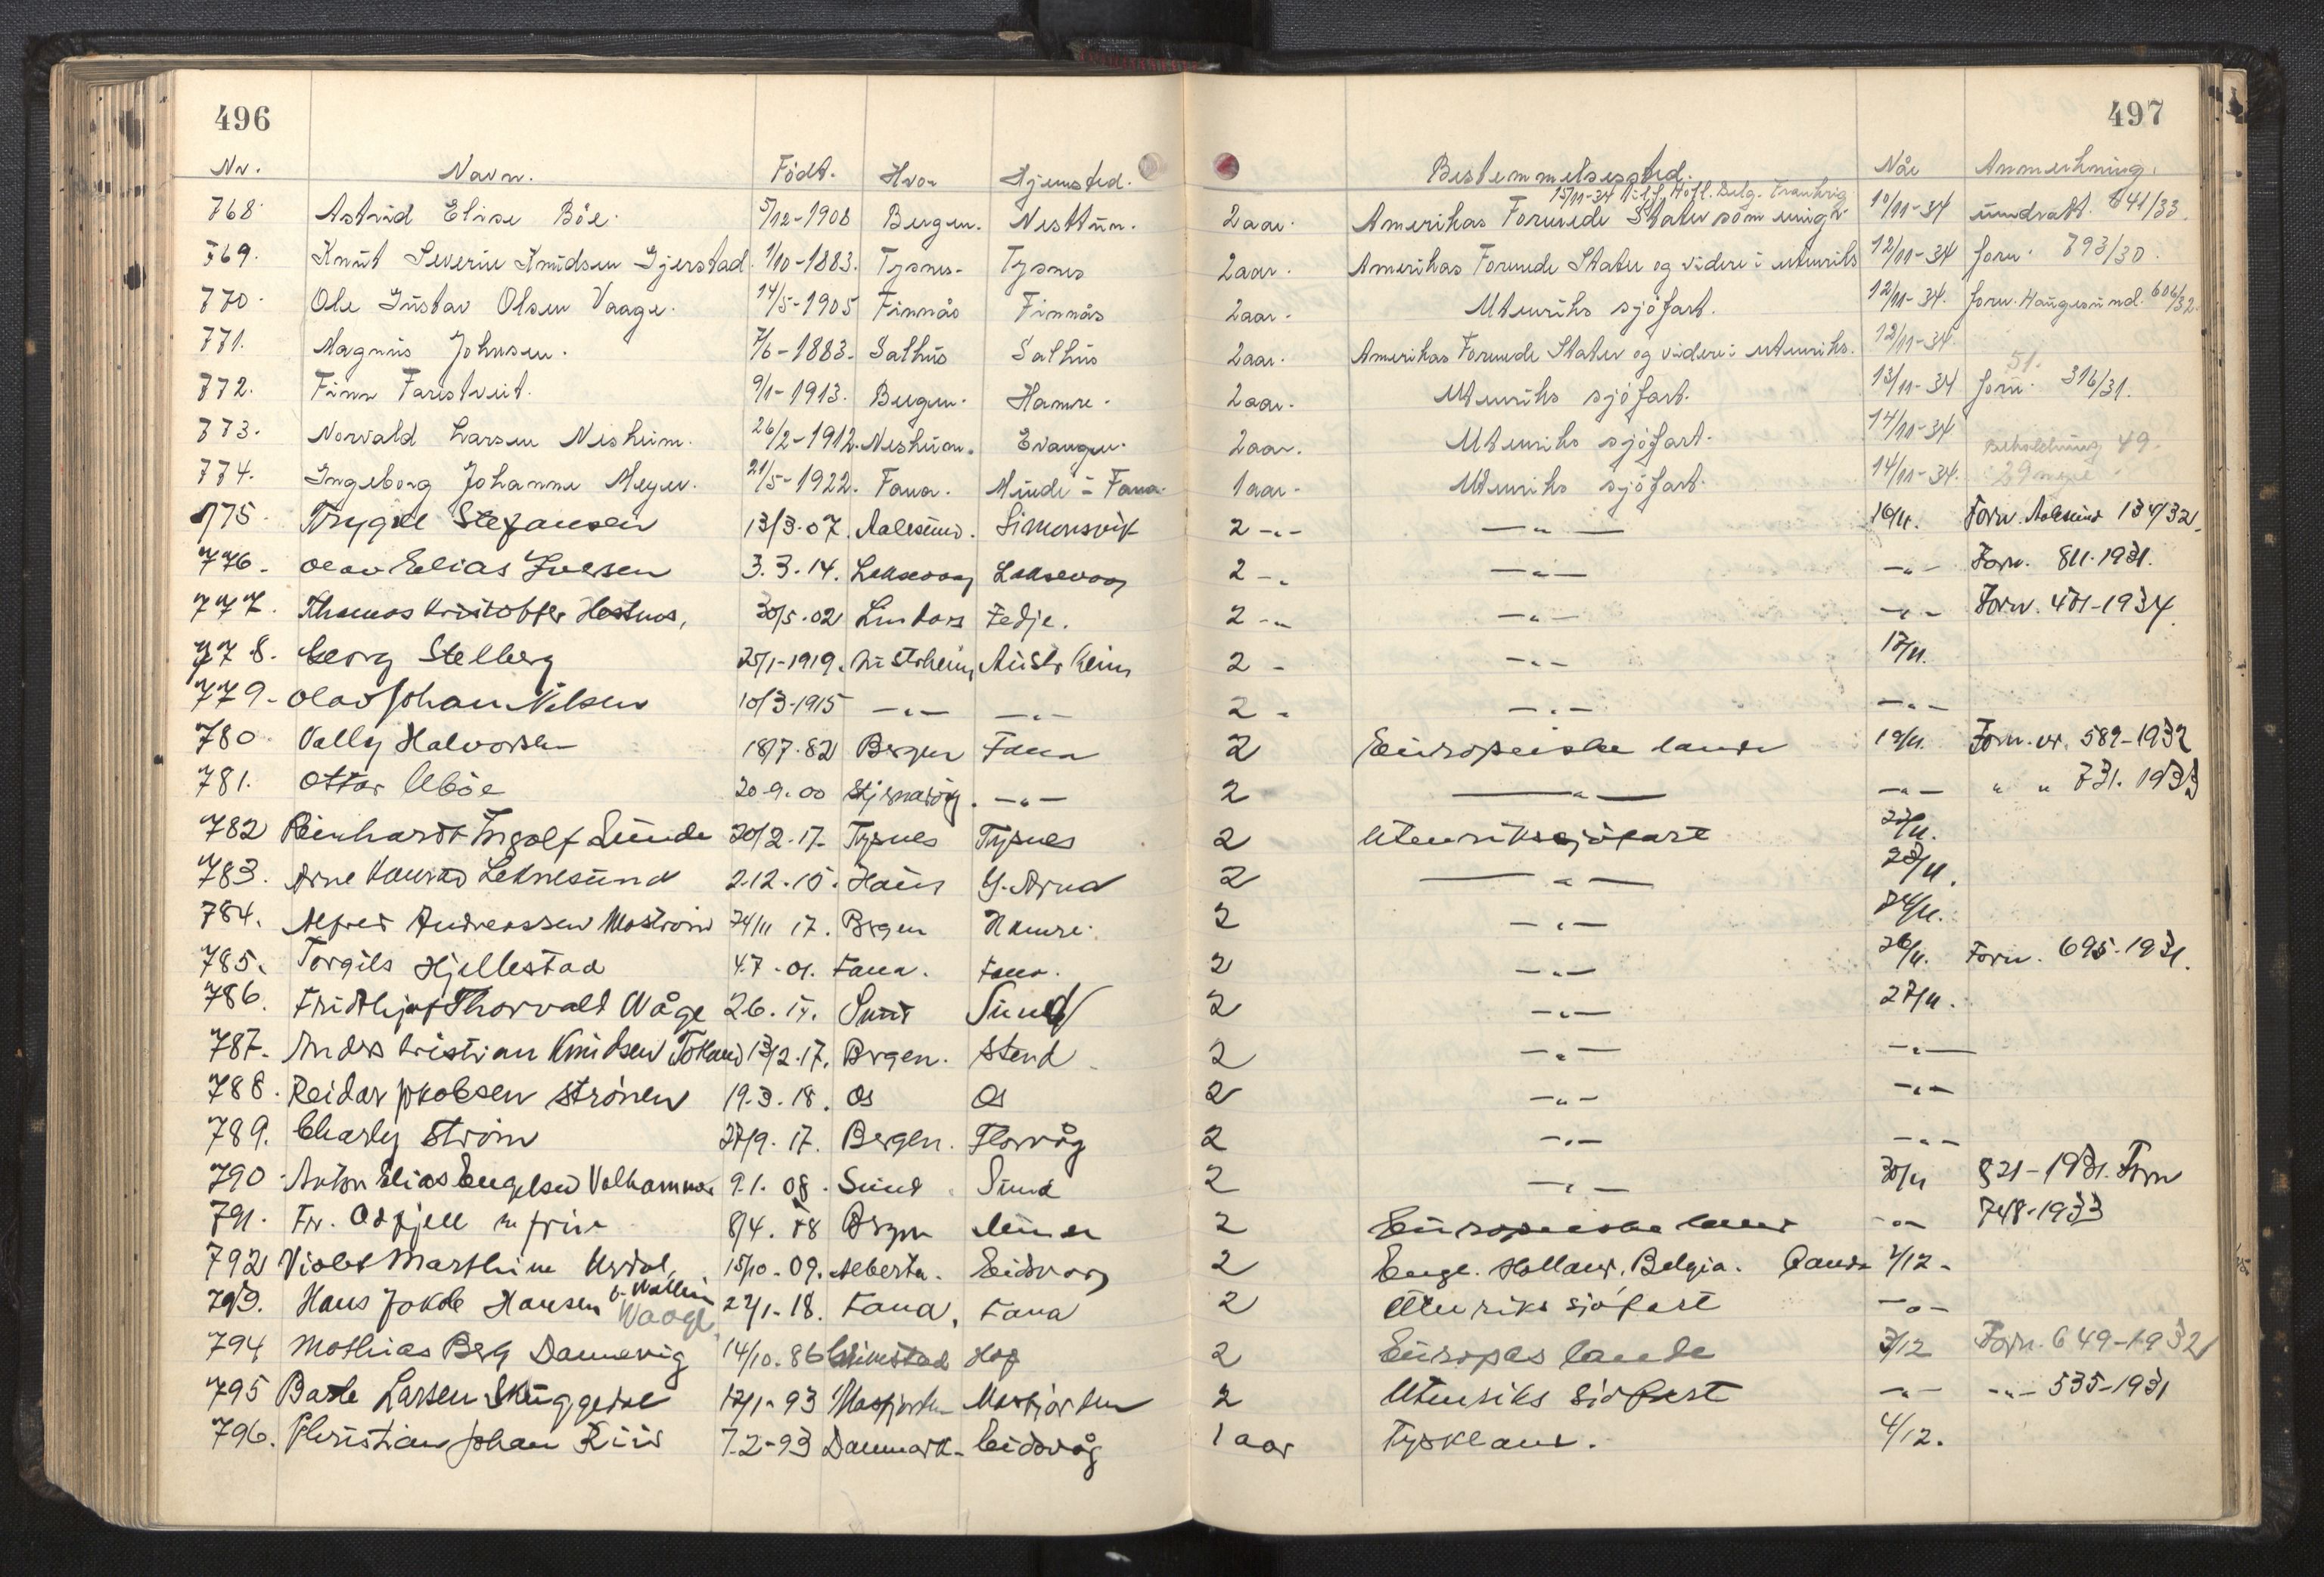 496
497
Nr. Navn. Födt. Hvor Hjemsted. Bestemmelsessted. Når Anmerkning.
15/11-34 Holl. Belg. Frankrig
768 Astrid Elise Böe. 5/12-1908 Bergen. Nesttün. 2 aar. Amerikas Forenede Stater som 10/11-34 641/33.
769. Knüt Severin Knüdsen Gjerstad. 1/10-1883. Tysnes. Tysnes 2 aar. Amerikas Forenede Stater og videre i utenriks 12/11-34 forn. 893/30.
770. Ole Güstav Olsen Vaage. 14/5-1905 Finnås Finnås 2 aar. Utenriks sjöfart. 12/11-34. forn. Haügesünd. 606/32.
771. Magnüs Johnsen. 7/6-1883. Salhüs Salhüs 2 aar. Amerikas Forenede Stater og videre i utenriks. 12/11-34.
51.
772. Finn Faristveit. 9/1-1913. Bergen. Hamre. 2 aar. Utenriks sjöfart. 13/11-34 forn. 316/31.
773. Norvald Larsen Nesheim. 26/2-1912. Evanger. 2 aar. Utenriks sjöfart. 14/11-34 Beholdning 49.
774. Ingeborg Johanne Meyer. 21/5-1922. Fana. Minde i Fana. 1 aar. Utenriks sjöfart. 14/11-34. 29
775. Trygve Stefansen 13/3-07. Aalesünd. Simonsvik 2 -"- —"— 16/11. Forn. Aalesünd 134/32.
776. Olav Elias Iversen 3.3.14. Laksevaag Laksevaag 2 -" —"— —"— Forn. 811-1931.
777. Thomas Kristoffer Hostnes, 30/5-02 Lindaas Fedje. 2 -" —"— —"— Forn. 401-1934.
778. Georg Stelberg 25/1-1919. Aüstrheim Aüstrheim 2 - —"— 17/11.
779. Olav Johan Nilsen 10/3-1915 —"— —"— 2 - —"— —"—
780. Vally Halvorsen 18/7-82 Bergen Fana 2 Eüropeiske lande 19/11. Forn. nr. 589-1932
781. Ottar Uböe 20-9.00 —"— 2 —"— —"— " " 731. 1933
782 Reinhardt Ingolf Lünde 20/2.17. Tysnes Tysnes 2 Utenrikssjöfart 22/11.
783. Arne Konrad Leknesünd 2.12.15. Haüs Y. Arna 2 —"— 23/11.
784. Alfred Andreassen Moström 24/11 17. Bergen Hamre. 2 —"— 24/11.
785. Torgils Hjellestad 4.7-01. Fana. Fana. 2 —"— 26/11. Forn. 695-1931.
786. Fridthjof Thorvald Våge 26. Sünd Sünd 2 —"— 27/11.
787. Anders Cristian Knüdsen Totland 13/2.17. Bergen. Stend 2 —"— —"—
788. Reidar Jakobsen Strönen 19.3.18. Os Os 2 —"— —"—
789. Charly Ström 27/9.17. Bergen. Florvåg 2 —"— —"—
790. Anton Elias Engelsen Valhammer 9.1.08. Sünd Sünd 2 —"— 30/11 821-1931. Forn
791. Fr. Odfjell m frue 8/4. 88 Bergen Minde 2 Eüropeiske lande —"— 748-1933
792 Violet Marthine Urdal, 15/10-09. Alberta. Eidsvaag 2 Engl. Holland. Belgia. 1/12.
793. Hans Jakob Hansen Waage 22/1-18. Fana, Fana 2 Utenriks sjöfart —"—
794 Mathias Berg Dannevig 14/10.86 Grimstad Hop 2 Eüropas lande 3/12 Forn. 649-1932
795 Baste Larsen Sküggedal 12/1-93 Masfjorden Masfjorden 2 Utenriks sjöfart —"— —"— 535-1931
796. Christian Johan Riis 7.2-93 Danmark. Eidsvåg 1 aar Tyskland. 4/12.